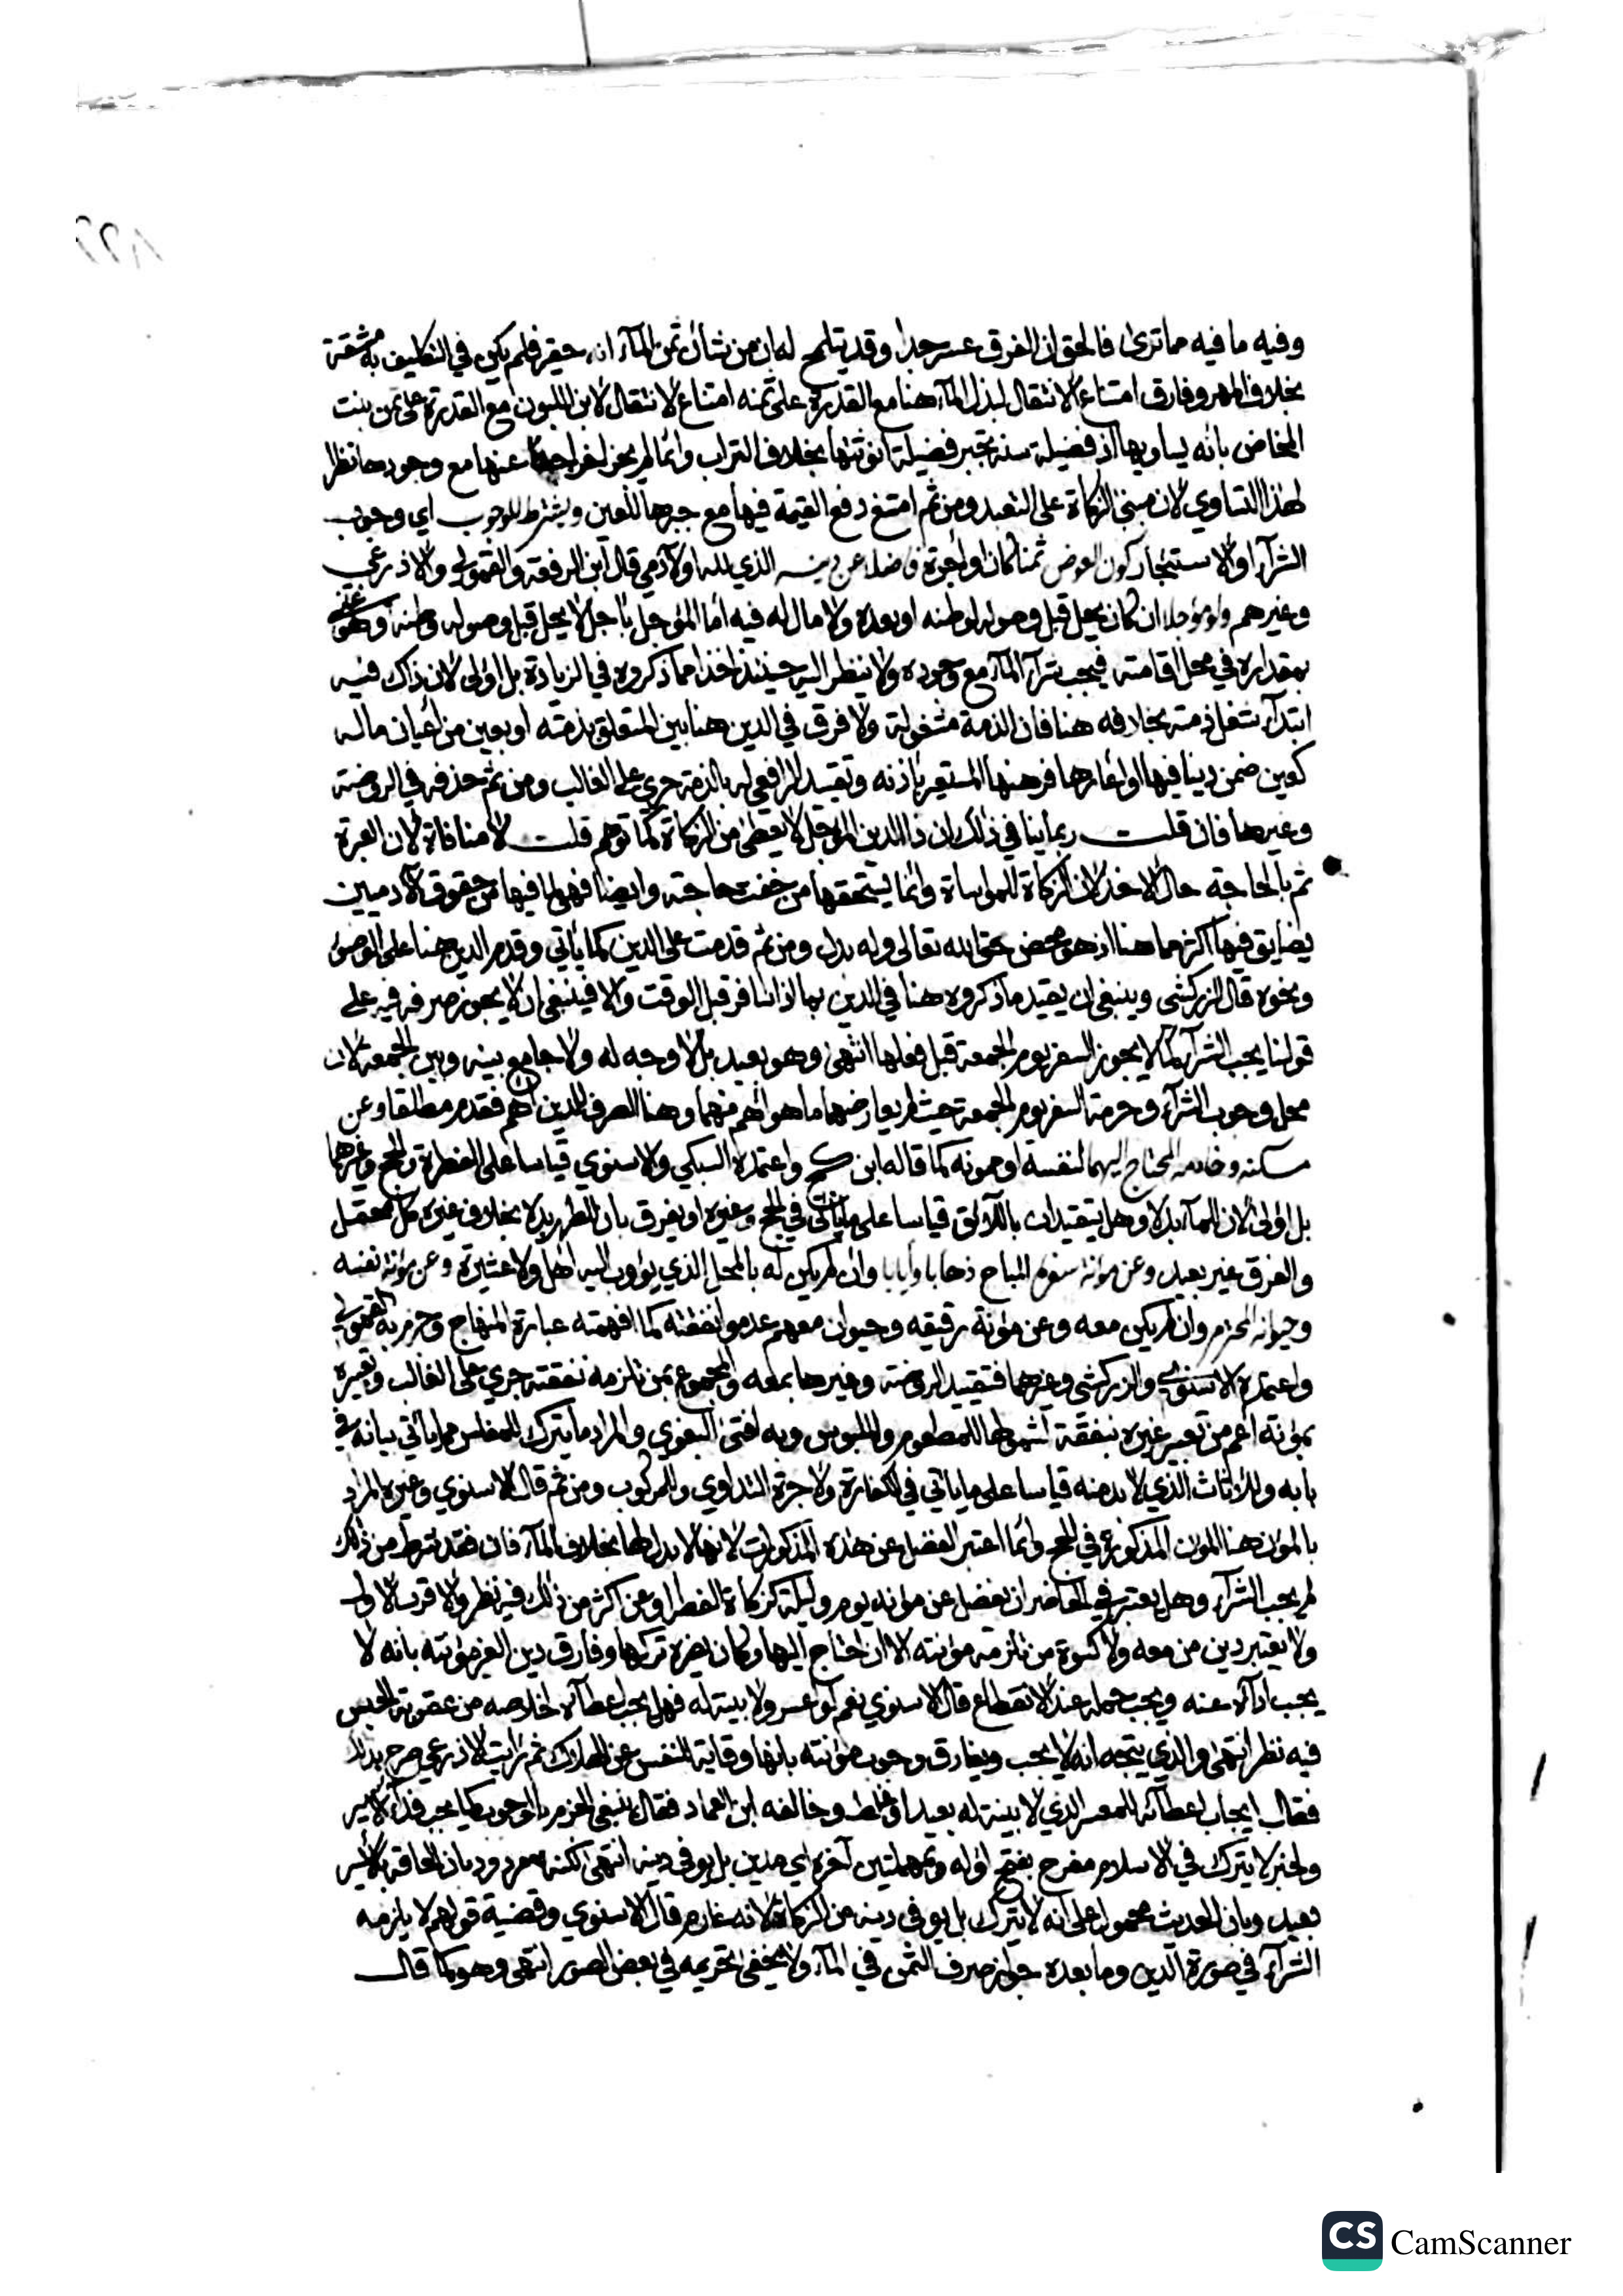 وفيه ما فيه مما ترى فالحق ان الفرق عسر جدا وقد يتلمح له بان من شأن ثمن المآء انه حقير فلم يكن في التكليف به مشقة
بخلاف المهر وفارق امتناع الانتقال لبذل المآء هنا مع القدرة على ثمنه امتناع الانتقال لابن اللبون مع القدرة على ثمن بنت
المخاض بانه يساويها اذ فضيلة سنه تجبر فضيلة انوثتها بخلاف التراب وانما لم يجز اخراجه عنها مع وجودها نظرا
لهذا التساوي لان مبنى الزكاة على التعبد ومن ثم امتنع دفع القيمة فيها مع جبرها للعين ويشترط للوجوب اي وجوب
الشرآء او الاستئجار كون العوض ثمنا كان او اجرة فاضلا عن دينه الذي لله او لآدمي قال ابن الرفعة والقمولي والاذرعي
وغيرهم ولو مؤجلا ان كان يحل قبل وصوله لوطنه او بعده ولا مال له فيه اما المؤجل باجل لا يحل قبل وصوله وطنه وهو غني
بمقداره في محل اقامته فيجب شرآء المآء مع وجوده ولا ينظر اليه حينئذ اخذا مما ذكروه في الزيادة بل اولى لان ذاك فيه
ابتدآء شغل ذمته بخلافه هنا فان الذمة مشغولة ولا فرق في الدين هنا بين المتعلق بذمته او بعين من اعيان ماله
كعين ضمن دينا فيها او اعارها فرهنها المستعير باذنه وتقييد الرافعي له بالذمة جرى على الغالب ومن ثم حذفه في الروضة
وغيرها فان قلت ربما ينافي ذلك ان ذا الدين المؤجل لا يعطى من الزكاة كما توهم قلت لا منافاة لان العبرة
ثم بالحاجة حال الاخذ لان الزكاة للمواساة وانما يستحقها من خفت حاجته وايضا فهي لما فيها من حقوق الآدميين
يضايق فيها اكثر مما هنا اذ هو محض حق الله تعالى وله بدل ومن ثم قدمت على الدين كما يأتي وقدم الدين هنا على الوضوء
ونحوه قال الزركشي وينبغي ان يقيد ما ذكروه هنا في الدين بما اذا سافر قبل الوقت والا فينبغي ان لا يجوز صرفه فيه على
قولنا يجب الشرآء كما لا يجوز السفر يوم الجمعة قبل فعلها انتهى وهو بعيد بل لا وجه له ولا جامع بينه وبين الجمعة لان
محل وجوب الشرآء وحرمة السفر يوم الجمعة حيث لم يعارضهما ما هو اهم منهما وهنا الصرف للدين اهم فقدم مطلقا وعن
مسكنه وخادمه المحتاج اليهما لنفسه او ممونه كما قاله ابن كج واعتمده السبكي والاسنوي قياسا على الفطرة والحج وغيرهما
بل اولى لان للمآء بدلا وهل يتقيدان باللائق قياسا على ما يأتي في الحج وغيره او يفرق بان للطهر بدلا بخلاف غيره كل محتمل
والفرق غير بعيد وعن مؤنة سفره المباح ذهابا وايابا وان لم يكن له بالمحل الذي يؤوب اليه اهل ولا عشيرة وعن مؤنة نفسه
وحيوانه المحترم وان لم يكن معه وعن مؤنة رقيقه وحيوان معهم عدموا نفقته كما افهمته عبارة المنهاج وجزم به القمولي
واعتمده الاسنوي والزركشي وغيرهما فتقييد الروضة وغيرها بمعه والمجموع بمن تلزمه نفقته جري على الغالب وتعبيره
بمؤنته اعم من تعبير غيره بنفقة لشمولها للمطعوم والملبوس وبه افتى البغوي والمراد ما يترك للمفلس مما يأتي بيانه في
بابه وللاثاث الذي لا بد منه قياسا على ما يأتي في الكفارة ولاجرة التداوي والمركوب ومن ثم قال الاسنوي وغيره المراد
بالمؤن هنا المؤن المذكورة في الحج وانما اعتبر الفضل عن هذه المذكورات لانها لا بدل لها بخلاف المآء فان فقد شرط من ذلك
لم يجب الشرآء وهل يعتبر في الحاضر ان يفضل عن مؤنة يوم وليلة كزكاة الفطر او عن اكثر من ذلك فيه نظر والاقرب الاول
ولا يعتبر دين من معه ولا كسوة من تلزمه مؤنته الا ان احتاج اليها وكان يضره تركها وفارق دين الغير مؤنته بانه لا
يجب ادآؤه عنه ويجب حمله عند الانقطاع قال الاسنوي نعم لو اعسر ولا بينة له فهل يجب اعطآؤه لخلاصه من عقوبة الحبس
فيه نظر انتهى والذي يتجه انه لا يجب ويفارق وجوب مؤنته بانها وقاية للنفس عن الهلاك ثم رايت الاذرعي صرح بذلك
فقال ايجاب اعطآئه للمعسر الذي لا بينة له بعيد او غلط وخالفه ابن العماد فقال ينبغي الجزم بالوجوب كما يجب فدآء الاسير
ولخبر لا يترك في الاسلام مفرح بفتح اوله وبمهملتين آخره اي مدين بل يوفى دينه انتهى لكنه مردود بان الحاقه بالاسير
بعيد وبان الحديث محمول على انه لا يترك بل يوفى دينه من الزكاة لانه غارم قال الاسنوي وقضية قولهم لا يلزمه
الشرآء في صورة الدين وما بعده جواز صرف الثمن في المآء ولا يخفى تحريمه في بعض الصور انتهى وهو كما قال
CS CamScanner